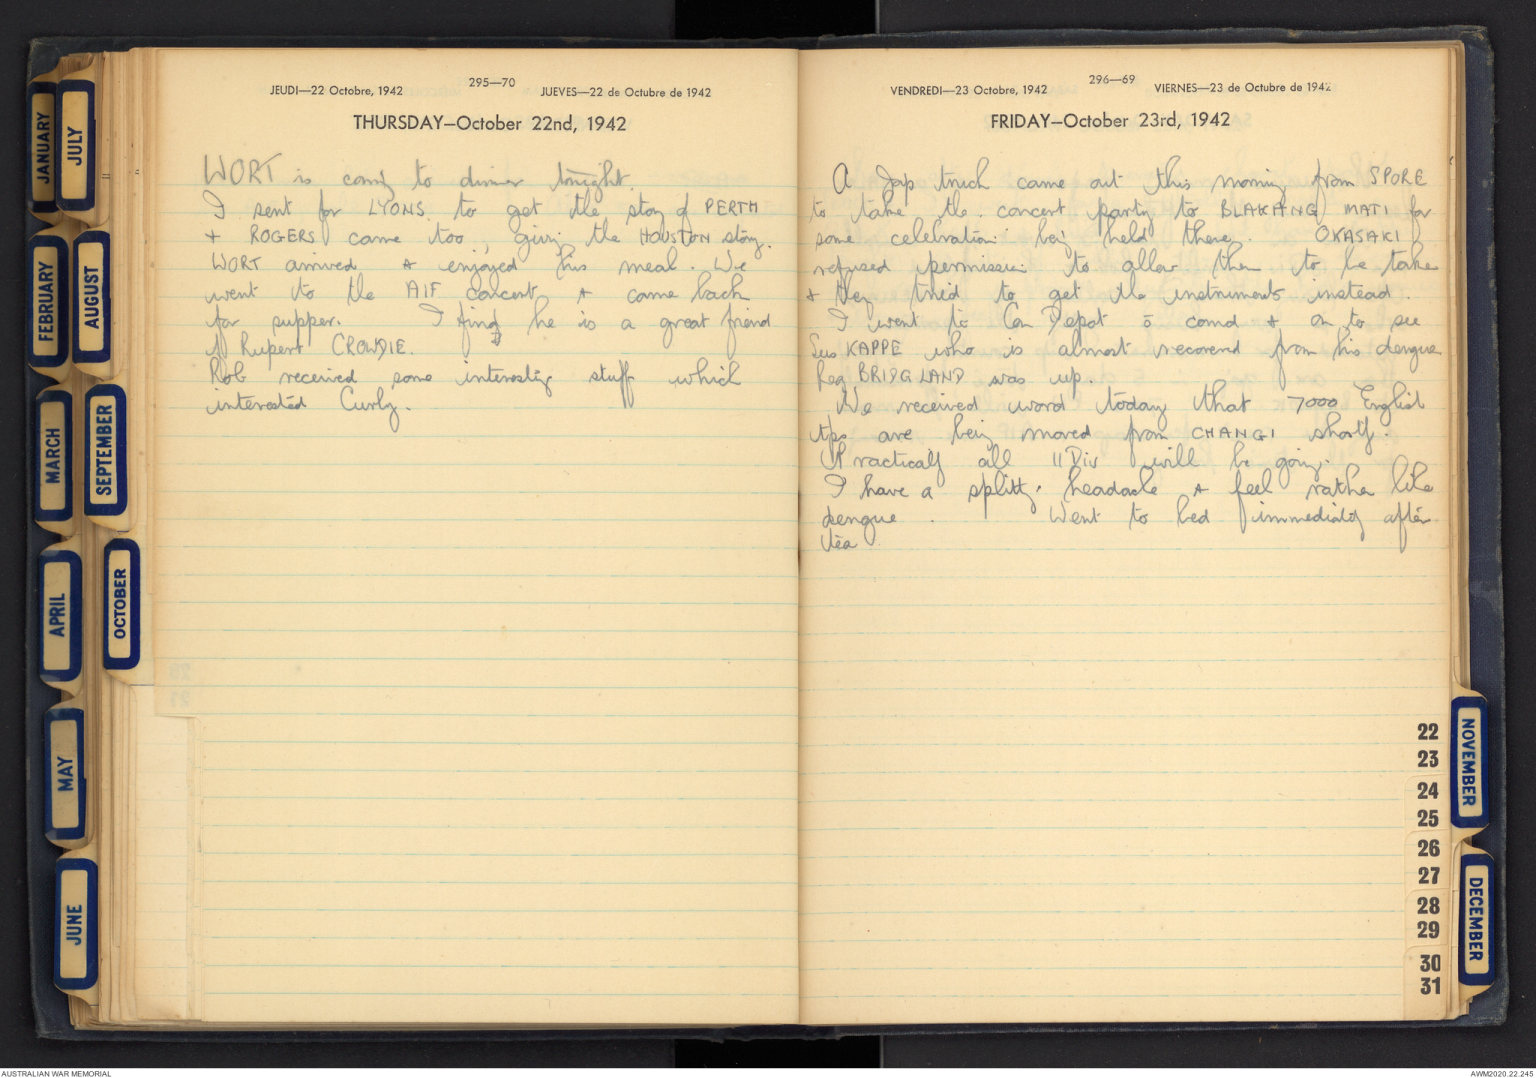 JEUDI—22 Octobre, 1942
295—70
JUEVES—22 de Octubre de 1942
THURSDAY—October 22nd, 1942
WORT is coming to dinner tonight.
I sent for LYONS. to get the story of PERTH
+ ROGERS came too, giving the HOUSTON story.
WORT arrived & enjoyed his meal. We
went to the AIF concert & came back
for supper. I find he is a great friend
of Rupert CROWDIE.
Rob received some interesting stuff which
interested Curly.
VENDREDI—23 Octobre, 1942
296—69
VIERNES—23 de Octubre de 1942
FRIDAY—October 23rd, 1942
A Jap truck came out this morning from SPORE
to take the concert party to BLAKANG MATI for
some celebration being held there. OKASAKI
refused permission to allow them to be taken
& they tried to get the instruments instead.
I went to Con Depot c̄ comd & on to see
Gus KAPPE who is almost recovered from his dengue
Reg BRIDGLAND was up.
We received word today that 7000 English
tps are being moved from CHANGI shortly.
Practically all 11 Div will be going.
I have a splitting headache & feel rather like
dengue. Went to bed immediately after
tea
JANUARY
JULY
FEBRUARY
AUGUST
MARCH
SEPTEMBER
APRIL
OCTOBER
MAY
JUNE
NOVEMBER
DECEMBER
22
23
24
25
26
27
28
29
30
31
AUSTRALIAN WAR MEMORIAL
AWM2020.22.245